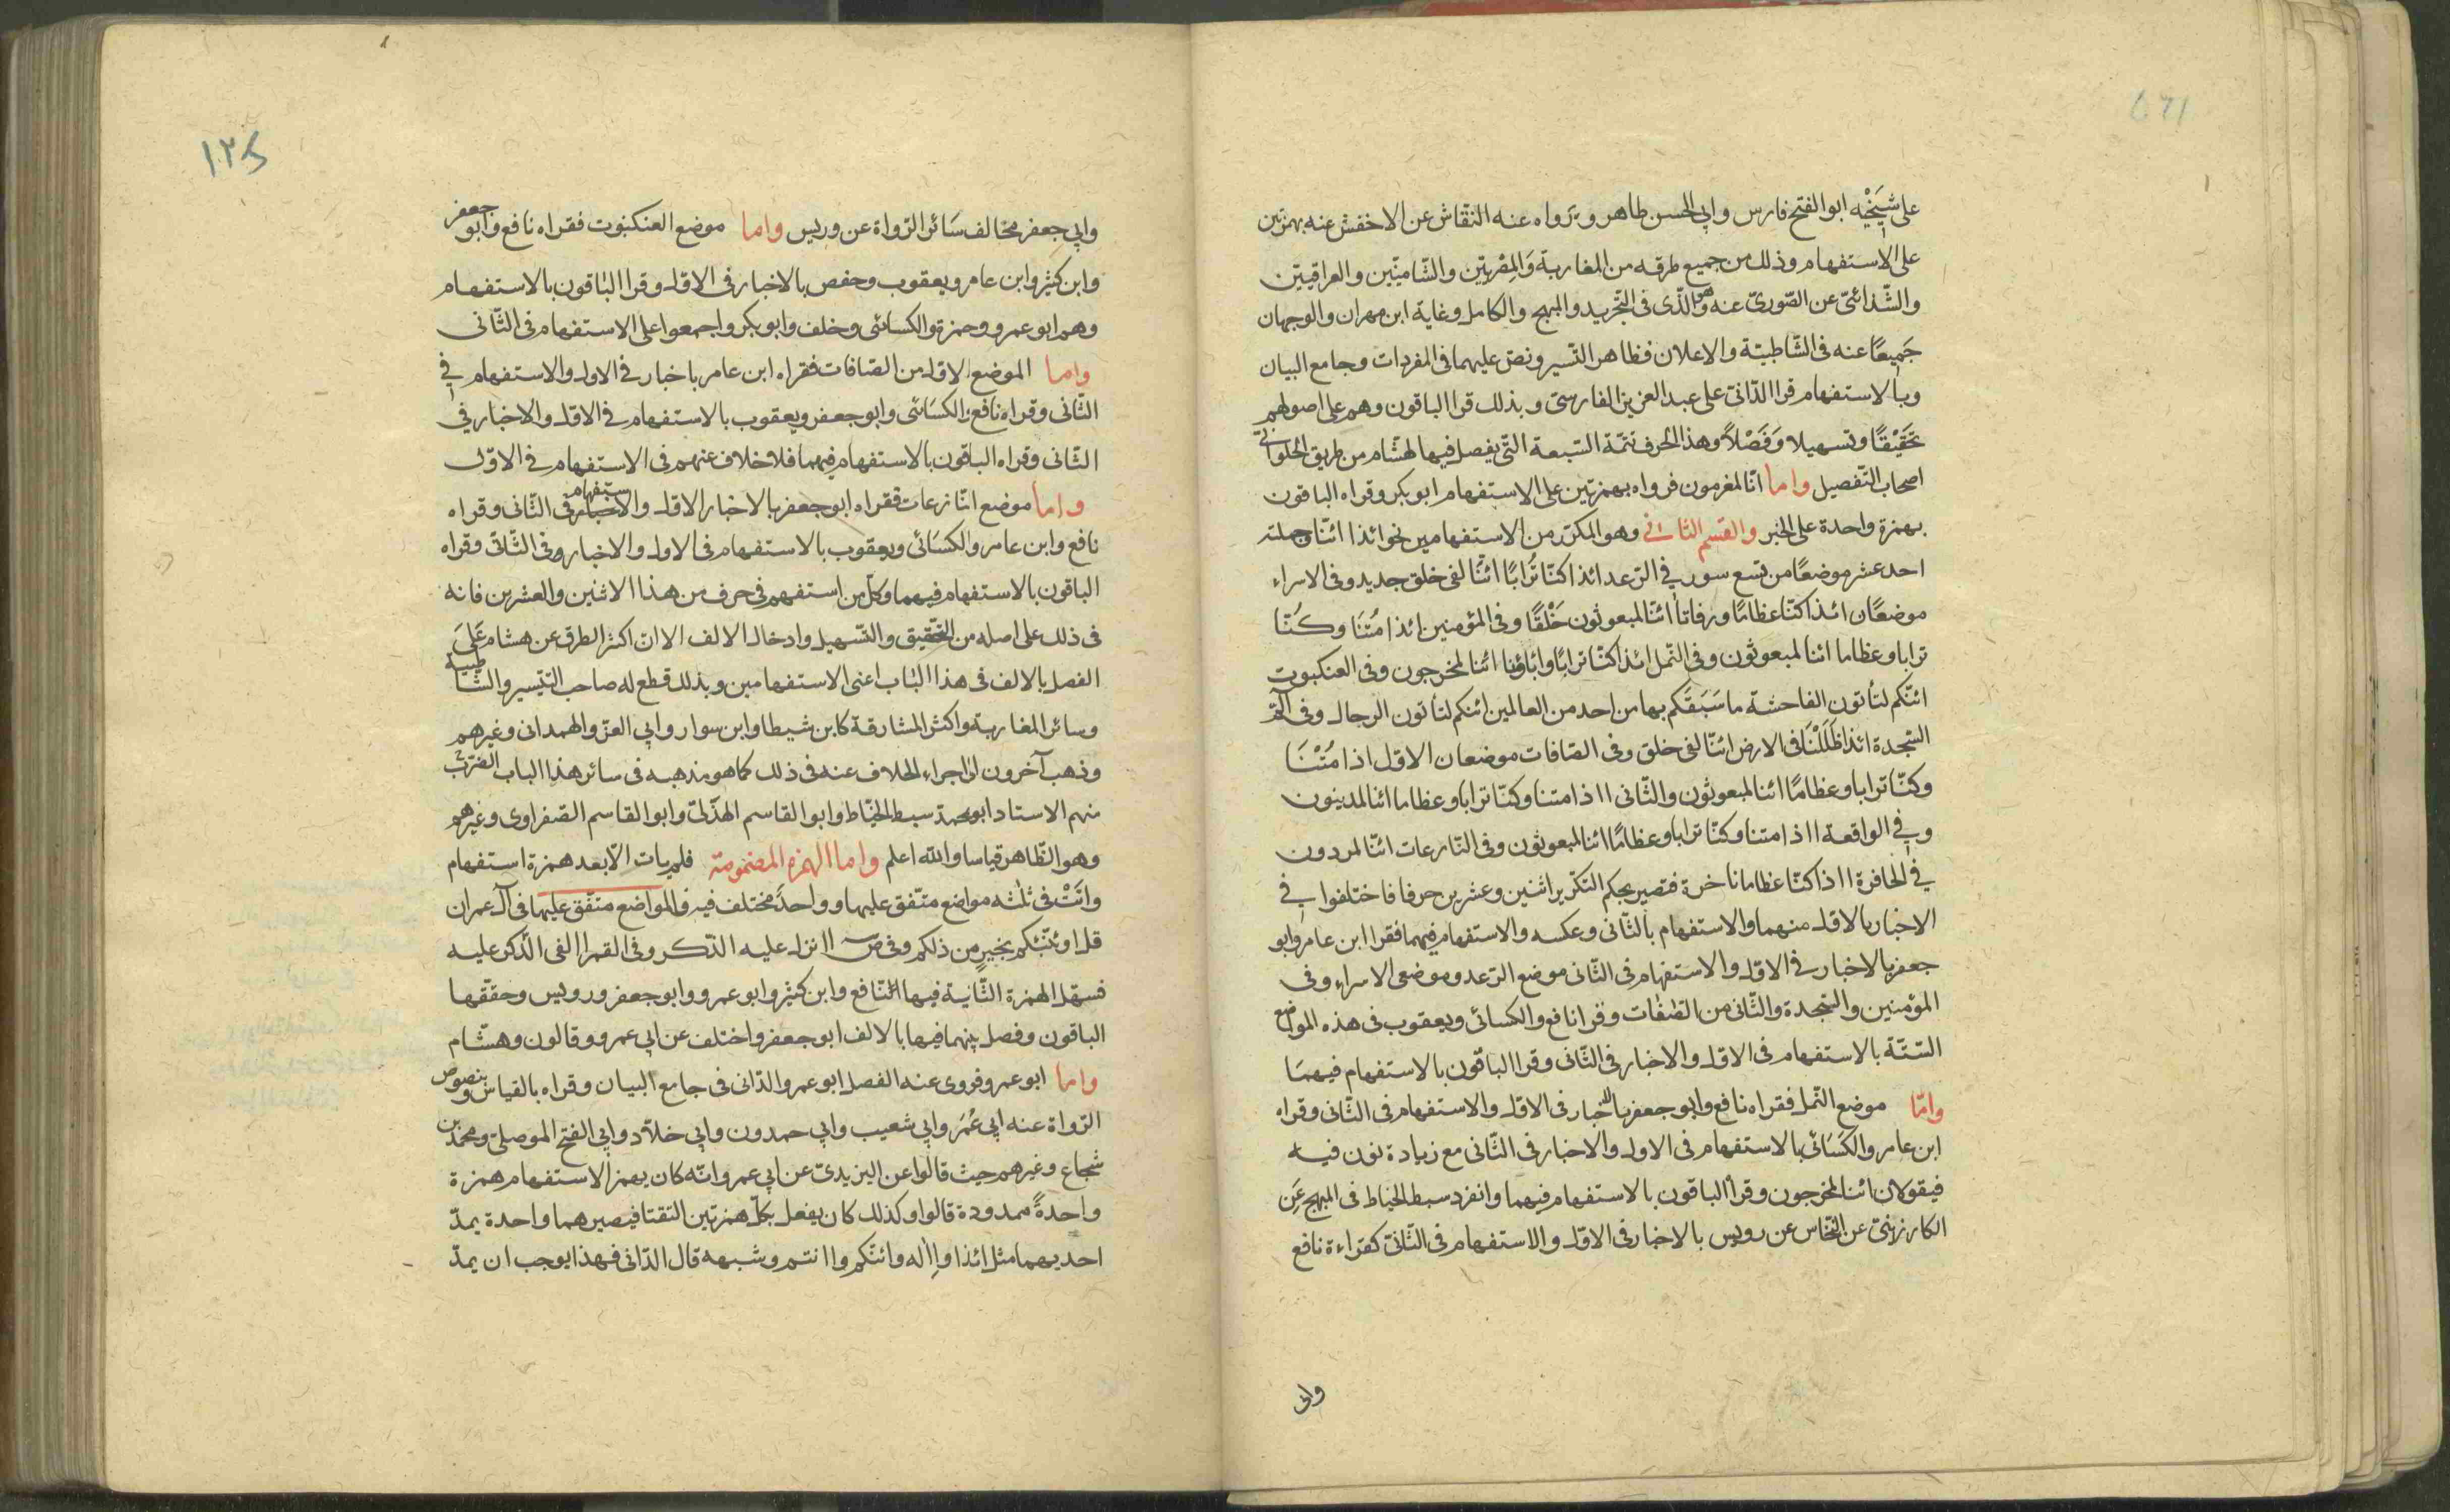 على شيخيه ابو الفتح فارس وابي الحسن طاهر ويرواه عنه النقّاش عن الاخفش عنه بهمزتين
على الاستفهام وذلك من جميع طرقه من المغاربة والمقربين والشّاميّين والعراقيين
والشّذائيّ عن الصّوريّ عنه وهو الّذى فى التّجريد والمبهج والكامل وغاية ابن مهران والوجهان
جَميعًا عنه فى الشّاطبيّة والاعلان فظاهر التّسير ونصّ عليهما فى المفردات وجامع البيان
وبالاستفهام قرا الدّانىّ على عبد العزيز الفارسىّ وبذلك قرا الباقون وهم على اصولهم
تحَقيْقًا وتسهيلا وَفَصْلاً وهذا الحرف تتمّة السّبعة التّى يفصل فيها لهشام من طريق الحلوانىّ
اصحاب التّفصيل واما انّا لمغرمون فرواه بهمزتين على الاستفهام ابو بكر وقراه الباقون
بهمزة واحدة على الخبر والقسم الثانى وهو المكرّر من الاستفهامين نحو ائذا ائنّا جملته
احد عشر موضعًا من تسع سور في الرّعد ائذا كنّا تُرابًا ائنّا لفى خلق جديد وفى الاسراء
موضعان ائذا كنّا عظامًا ورفاتا ائنّا لمبعوثون خَلْقًا وفى المؤمنين ائذا مُتْنَا وكُنّا
ترابا وعظاما ائنا لمبعوثون وفى النّمل ائذا كنّا ترابًا واباؤنا ائنا لمخرجون وفى العنكبوت
ائنّكم لتأتون الفاحشة ما سَبَقَكم بها من احد من العالمين ائنكم لتأتون الرجال وفى الم
السّجدة ائذا ظَلَلْنَا فى الارض ائنّا لفى خلق وفى الصّافات موضعان الاوّل اذا مُتْنَا
وكنّا ترابا وعظامًا ائنا لمبعوثون والثّانى ااذا متنا وكنّا ترابا وعظاما ائنا لمدينون
وفي الواقعة ااذا متنا وكنّا ترابا وعظامًا ائنا لمبعوثون وفى النّازعات ائنّا لمردون
في الحافرة ااذا كنّا عظاما ناخرة فتصير بحكم التكّرير اثنين وعشرين حرفا فاختلفوا في
الاخبار بالاول منهما والاستفهام بالثّانى وعكسه والاستفهام فيهما فقرا ابن عامر وابو
جعفر بالاخبار في الاول والاستفهام فى الثّانى موضع الرّعد وموضعى الاسراء وفى
المؤمنين والسّجدة والثّانى من الصّافّات وقرا نافع والكسائى ويعقوب فى هذه المواضع
السّتّة بالاستفهام فى الاول والاخبار فى الثّانى وقرا الباقون بالاستفهام فيهمَا
وامّا موضع النّمل فقراه نافع وابو جعفر بالاخبار فى الاول والاستفهام فى الثّانى وقراه
ابن عامر والكسَائىّ بالاستفهام فى الاول والاخبار فى الثّانى مع زيادة نون فيه
فيقولان ائننا لمخرجون وقرأ الباقون بالاستفهام فيهما وانفرد سبط الخياط فى المبهج عَن
الكارزينىّ عن النّخّاس عن رويس بالاخبار فى الاوّل والاستفهام فى الثّانى كقراءة نافع
وابى
١٢٥
وابي جعفر مخالف سَائر الرّواة عن رويس واما موضع العنكبوت فقراه نافع وابو جعفر
وابن كثير وابن عامر ويعقوب وحفص بالاخبار فى الاول وقرا الباقون بالاستفهام
وهم ابو عمرو وحمزة والكسائى وخلف وابو بكر واجمعوا على الاستفهام فى الثّانى
واما الموضع الاول من الصّافات فقراه ابن عامر باخبار في الاول والاستفهام في
الثّانى وقراه نافع والكسَائى وابو جعفر ويعقوب بالاستفهام في الاول والاخبار في
الثّانى وقراه الباقون بالاستفهام فيهما فلا خلاف عنهم فى الاستفهام في الاوّل
واما موضع النّازعات فقراه ابو جعفر بالاخبار الاول والاستفهام فى الثّانى وقراه
نافع وابن عامر والكسَائى ويعقوب بالاستفهام فى الاول والاخبار وفى الثّانى وقراه
الباقون بالاستفهام فيهما وكلّ من استفهم فى حرف من هذا الاثنين والعشرين فانه
فى ذلك على اصله من التّحقيق والتّسهيل وادخال الالف الا انّ اكثر الطرق عن هشام عَلَى
الفصل بالالف فى هذا الباب اعنى الاستفهامين وبذلك قطع له صاحب التّيسير والشّاطبية
وسائر المغاربة واكثر المشارقة كابن شيطا وابن سوار وابي العزّ والهمدانى وغيرهم
وذهب آخرون الى اجراء الخلاف عنه فى ذلك كما هو مذهبه فى سائر هذا الباب الضرب
منهم الاستاد ابو محمد سبط الخيّاط وابو القاسم الهذلىّ وابو القاسم الصّفراوى وغيرهم
وهو الظّاهر قياسا والله اعلم واما الهمزة المضمومة فلم يات الّا بعد همزة استفهام
واتَتْ فى ثلثه مواضع متّفق عليها وواحدٌ مختلف فيه والمواضع متّفق عليها فى آل عمران
قل اونبّئكم بخيرٍ من ذلكم وفى ص اانزل عليه الذّكر وفى القمر االقى الذّكر عليه
فسهّل الهمزة الثّانية فيها نافع وابن كثير وابو عمرو وابو جعفر ورويس وحقّقها
الباقون وفصل بينهما فيها بالالف ابو جعفر واختلف عن ابي عمرو وقالون وهشّام
واما ابو عمرو فروى عنه الفصل ابو عمرو الدّانى فى جامع البيان وقراه بالقياس وبنصوص
الرّواة عنه ابي عُمَر وابي شعيب وابي حمدون وابي خلّاد وابي الفتح الموصلىّ ومحمد بن
شجاع وغيرهم حيث قالوا عن اليزيدىّ عن ابي عمرو انّه كان يهمز الاستفهام همزة
واحدةً ممدودة قالوا وكذلك كان يفعل بكلّ همزتين التقتا فيصيرهما واحدة يمدّ
احديهما مثل ائذا واإله وائنّكم واانتم وشبهه قال الدّانى فهذا يوجب ان يمدّ